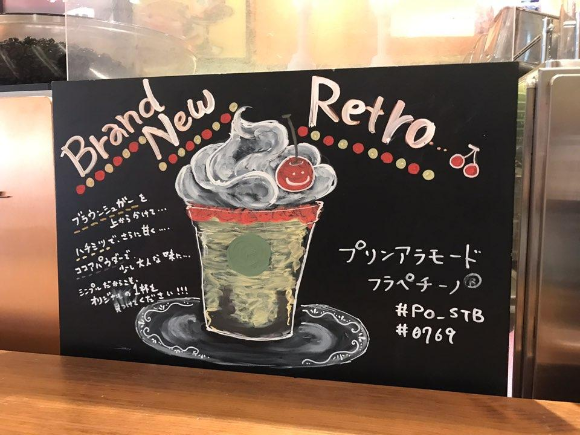 Brand
New
Retro...
ブラウンシュガーを
上からかけて...
ハチミツで、さらに甘く...
ココアパウダーで
少し大人な味に...
シンプルだからこそ
オリジナルの1杯を
見つけてください!!!
プリンアラモード
フラペチーノ®
#PO_STB
#0769